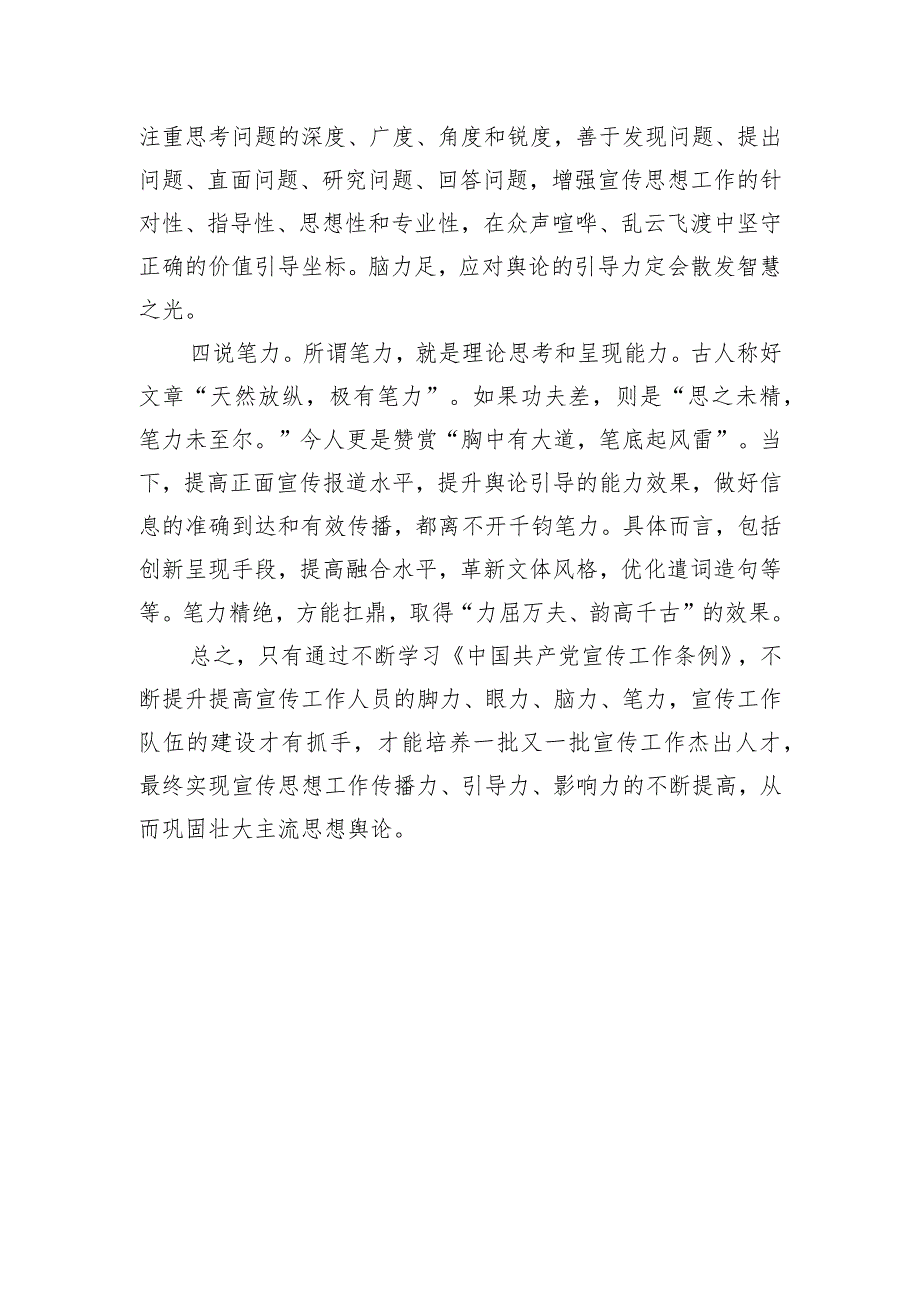 注重思考问题的深度、广度、角度和锐度，善于发现问题、提出
问题、直面问题、研究问题、回答问题，增强宣传思想工作的针
对性、指导性、思想性和专业性，在众声喧哗、乱云飞渡中坚守
正确的价值引导坐标。脑力足，应对舆论的引导力定会散发智慧
之光。
四说笔力。所谓笔力，就是理论思考和呈现能力。古人称好
文章“天然放纵，极有笔力”。如果功夫差，则是“思之未精，
笔力未至尔。”今人更是赞赏“胸中有大道，笔底起风雷”。当
下，提高正面宣传报道水平，提升舆论引导的能力效果，做好信
息的准确到达和有效传播，都离不开千钧笔力。具体而言，包括
创新呈现手段，提高融合水平，革新文体风格，优化遣词造句等
等。笔力精绝，方能扛鼎，取得“力屈万夫、韵高千古”的效果。
总之，只有通过不断学习《中国共产党宣传工作条例》，不
断提升提高宣传工作人员的脚力、眼力、脑力、笔力，宣传工作
队伍的建设才有抓手，才能培养一批又一批宣传工作杰出人才，
最终实现宣传思想工作传播力、引导力、影响力的不断提高，从
而巩固壮大主流思想舆论。